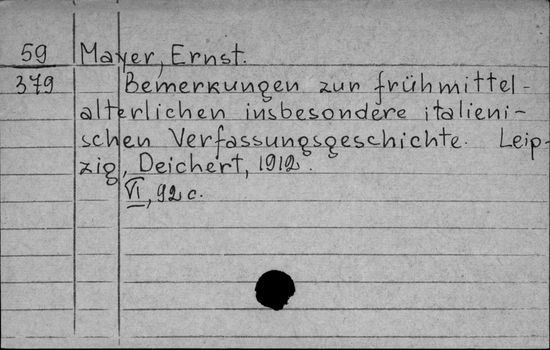 59 Mayer, Ernst.
379 Bemerkungen zur frühmittel-
alterlichen insbesondere italieni-
schen Verfassungsgeschichte. Leip-
zig, Deichert, 1912.
VI, 92 c.